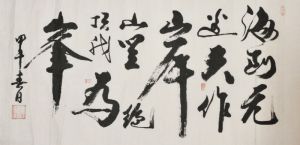 海到无
边天作
岸
山登绝
顶我为
峯
甲午春日